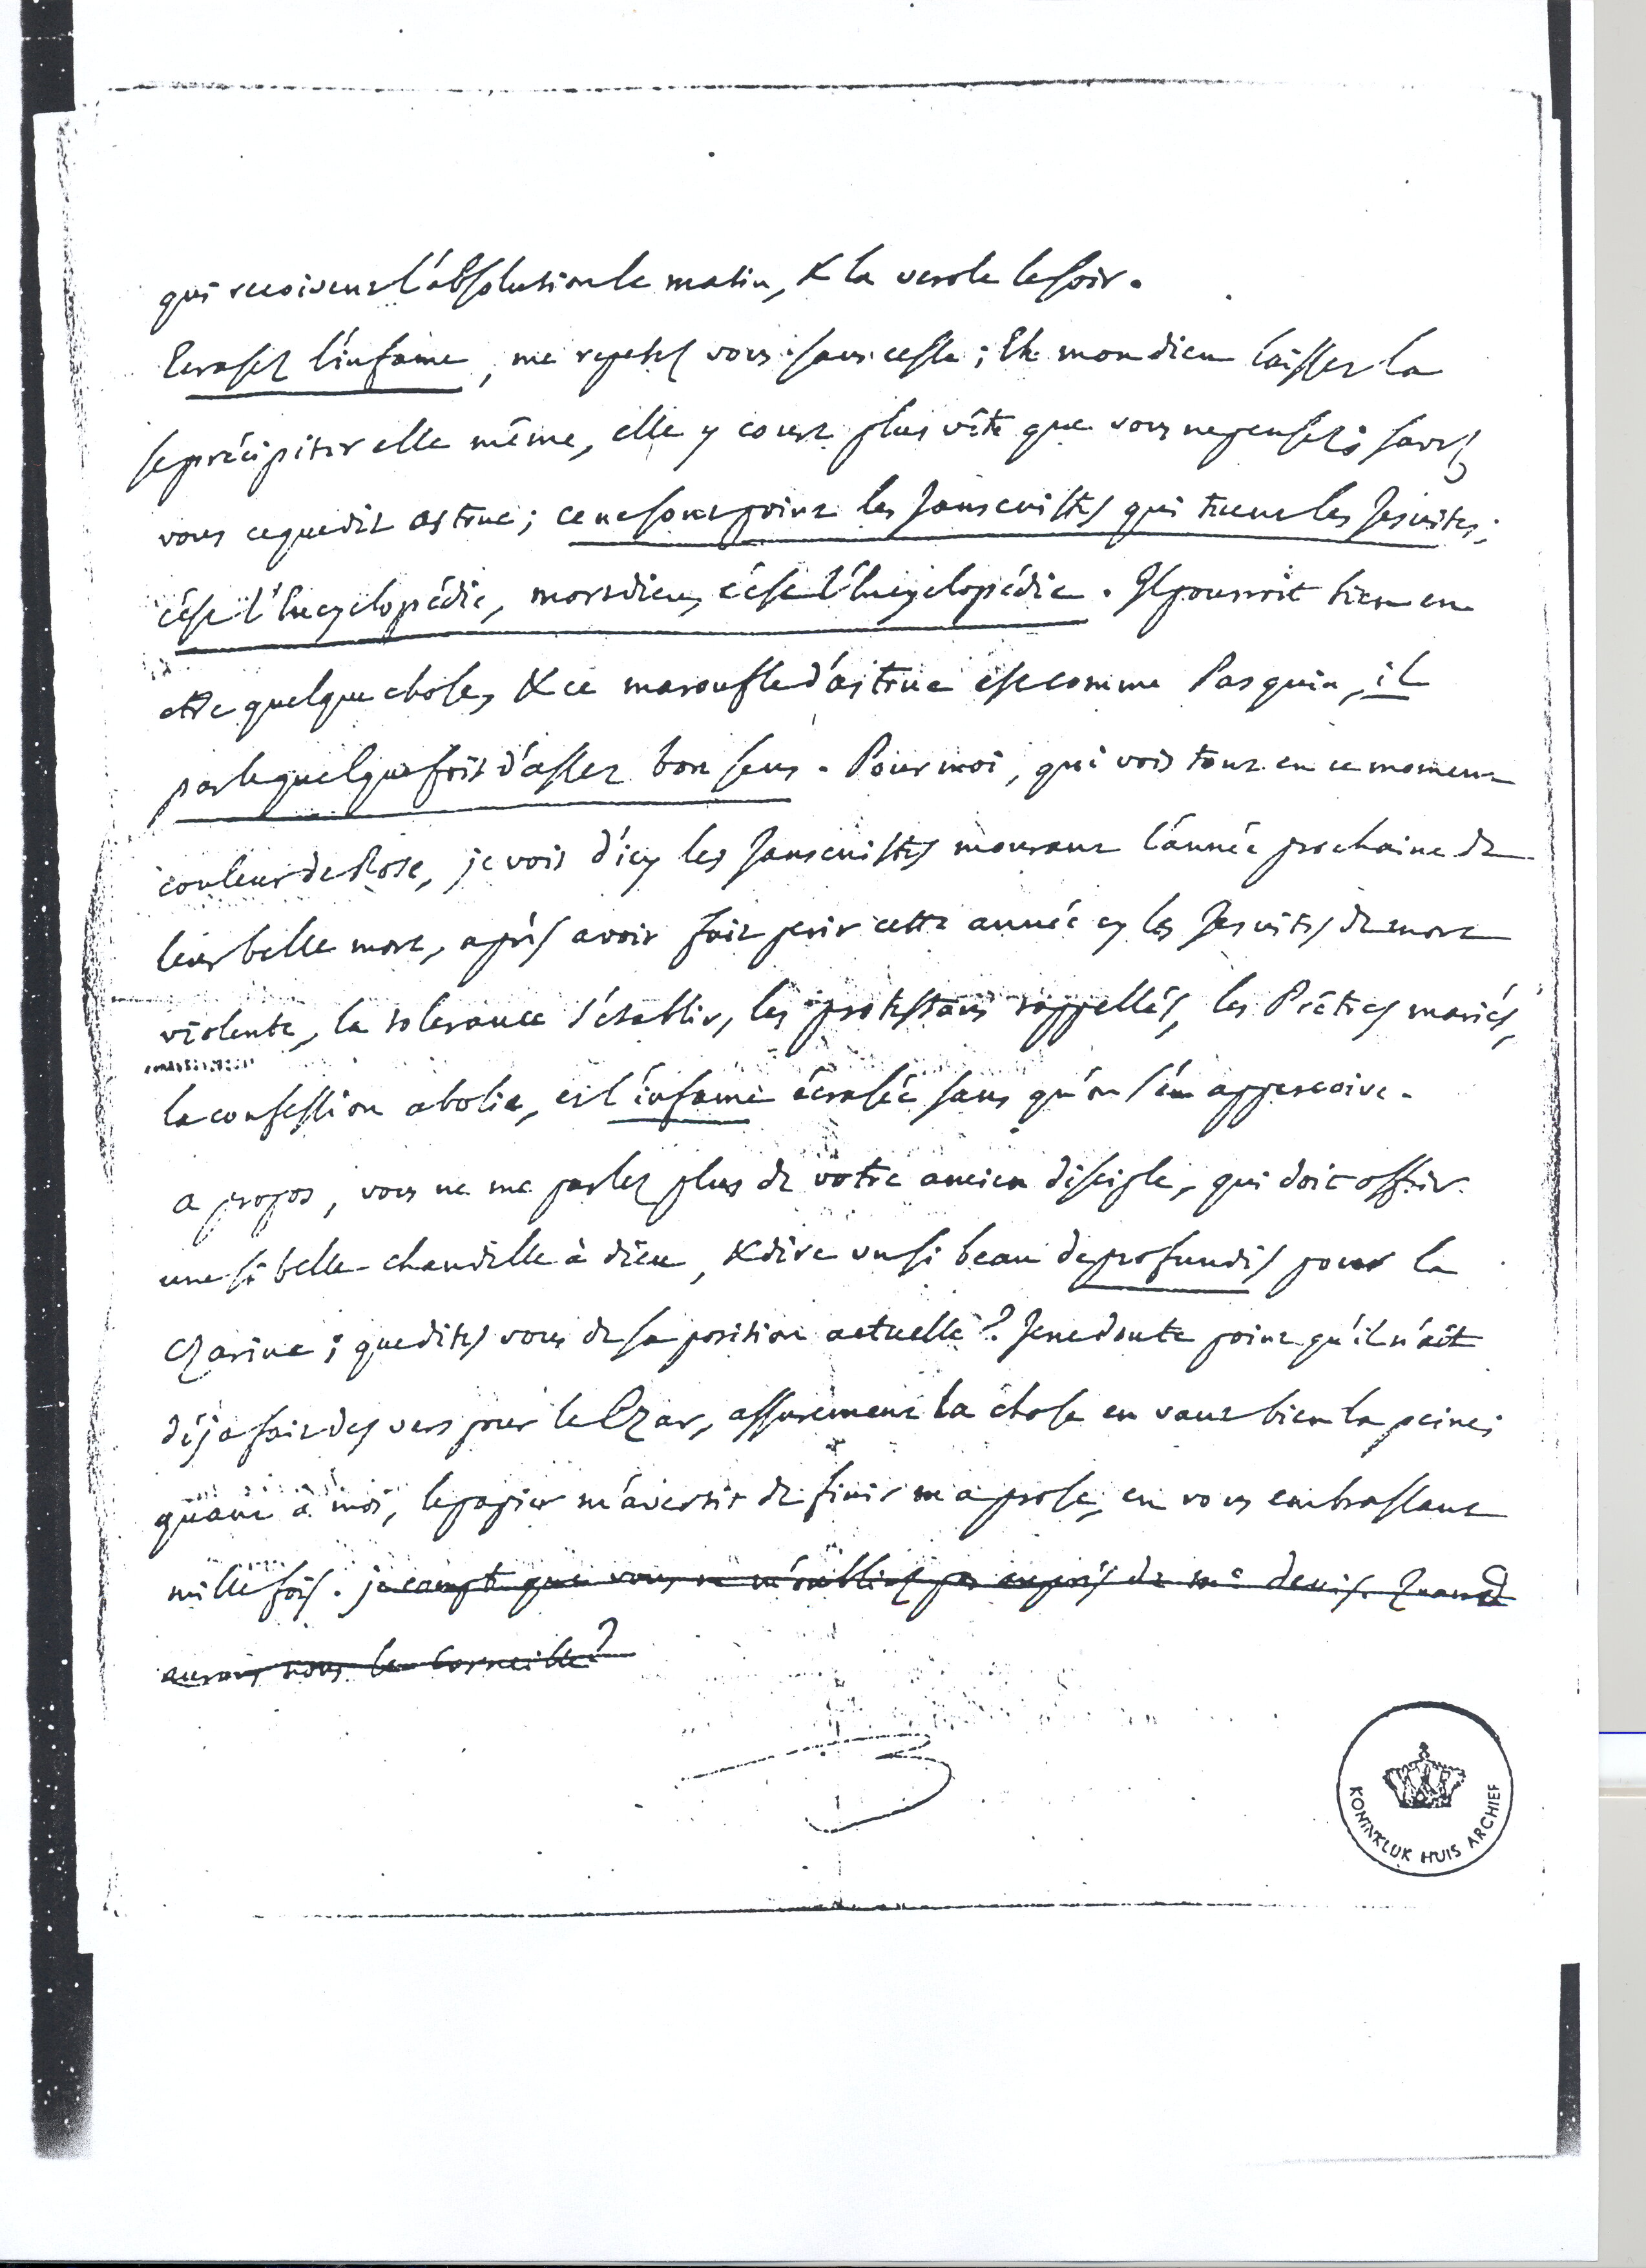 qui recoivent l'absolution le matin, & la verole le soir.
Ecrasez l'infame, me repetez vous sans cesse; Eh mon dieu laissez la
se précipiter elle même, elle y court plus vîte que vous ne pensez; savez
vous ce que dit astruc; ce ne sont point les Jansenistes qui tuent les Jesuites;
c'est l'Encyclopédie, mordieu, c'est l'Encyclopédie. Il pourroit bien en
etre quelque chose, & ce maroufle d'astruc est comme Pasquin, il
parle quelquefois d'assez bon sens. Pour moi, qui vois tout en ce moment
couleur de Rose, je vois d'icy les Jansenistes mourant l'année prochaine de
leur belle mort, après avoir fait perir cette année cy les Jesuites de mort
violente, la tolerance s'etablir, les protestans rappellés, les Prêtres mariés,
la confession abolie, et l'infame écrasée sans qu'on s'en apperçoive.
a propos, vous ne me parlez plus de votre ancien disciple, qui doit offrir
une si belle chandelle à dieu, & dire un si beau de profundis pour la
Czarine; que dites vous de sa position actuelle? Je ne doute point qu'il n'ait
déja fait des vers pour le Czar, assurement la chose en vaut bien la peine;
quant à moi, le papier m'avertit de finir ma prose, en vous embrassant
mille fois. je compte que vous ne m'oubliez pas auprès de me denis. Quand
aurons nous le Corneille?
KONINKLIJK HUIS ARCHIEF